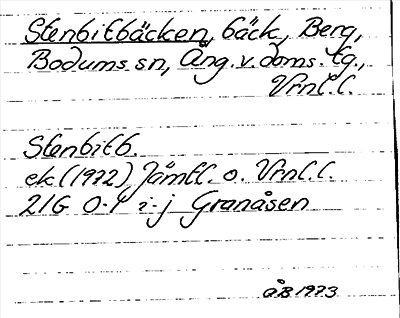 Stenbitbäcken, bäck, Berg,
Bodums sn, Ång. v. doms. tg.,
Vrnl.l.
Stenbitb.
ek (1922) Jämtl. o. Vrnl.l.
21G 0-1 i-j Granåsen
ÅB 1973